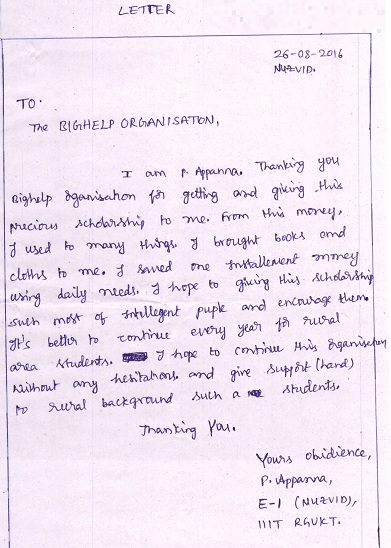 LETTER
26-08-2016
NUZVID.
TO.
The BIGHELP ORGANISATON,
I am P. Appanna. Thanking you
Bighelp Organisation for getting and giving this
precious scholarship to me. From this money,
I used to many things. I brought books and
cloths to me. I saved one Installement money
using daily needs. I hope to giving this scholarship
such most of Intellegent puple and encourage them.
It's better to continue every year for rural
area students. I hope to continue this organisation
without any hesitations. and give support (hand)
to rural background such a students.
Thanking You.
Yours obidience,
P. Appanna,
E-1 (NUZVID),
IIIT RGUKT.